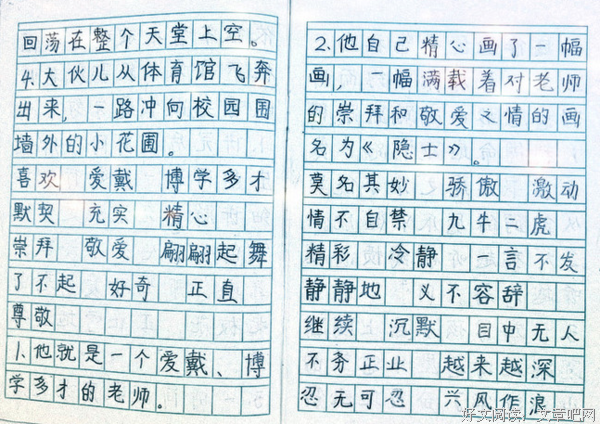 回荡在整个天堂上空。
4.大伙儿从体育馆飞奔
出来，一路冲向校园围
墙外的小花圃。
喜欢 爱戴 博学多才
默契 充实 精心
崇拜 敬爱 翩翩起舞
了不起 好奇 正直
尊敬
1.他就是一个爱戴、博
学多才的老师。
2.他自己精心画了一幅
画，一幅满载着对老师
的崇拜和敬爱之情的画
名为《隐士》。
莫名其妙 骄傲 激动
情不自禁 九牛二虎
精彩 冷静 一言不发
静静地 义不容辞
继续 沉默 目中无人
不务正业 越来越深
忍无可忍 兴风作浪
好文阅读：文章吧网